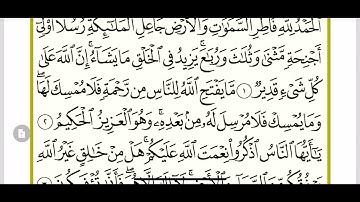 الْحَمْدُ لِلَّهِ فَاطِرِ السَّمَٰوَٰتِ وَالْأَرْضِ جَاعِلِ الْمَلَٰٓئِكَةِ رُسُلًا أُو۟لِىٓ
أَجْنِحَةٍ مَّثْنَىٰ وَثُلَٰثَ وَرُبَٰعَ ۚ يَزِيدُ فِى الْخَلْقِ مَا يَشَآءُ ۚ إِنَّ اللَّهَ عَلَىٰ
كُلِّ شَىْءٍ قَدِيرٌ ١ مَّا يَفْتَحِ اللَّهُ لِلنَّاسِ مِن رَّحْمَةٍ فَلَا مُمْسِكَ لَهَا ۖ
وَمَا يُمْسِكْ فَلَا مُرْسِلَ لَهُۥ مِنۢ بَعْدِهِۦ ۚ وَهُوَ الْعَزِيزُ الْحَكِيمُ ٢
يَٰٓأَيُّهَا النَّاسُ اذْكُرُوا۟ نِعْمَتَ اللَّهِ عَلَيْكُمْ ۚ هَلْ مِنْ خَٰلِقٍ غَيْرُ اللَّهِ